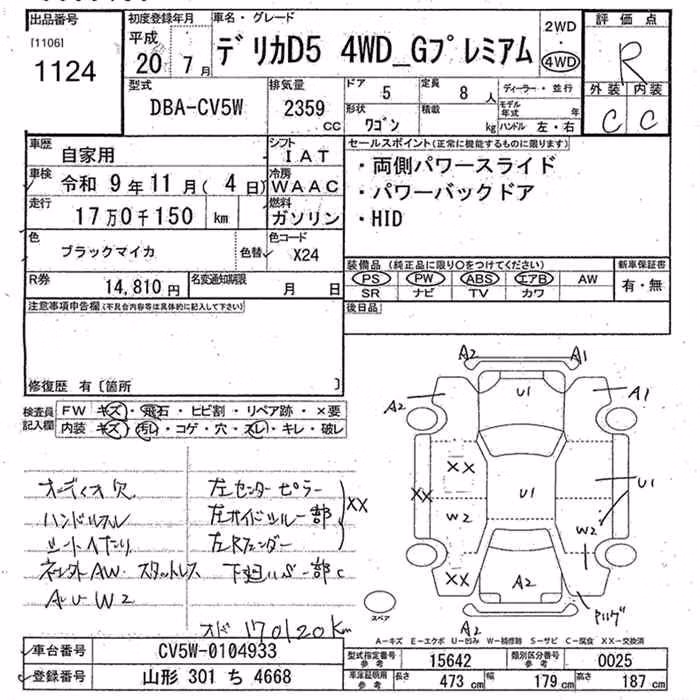 出品番号
[1106]
1124
初度登録年月
平成
20 7月
車名・グレード
デリカD5 4WD_Gプレミアム
2WD
・
4WD
評価点
R
外装 内装
C C
型式
DBA-CV5W
排気量
2359
CC
ドア
5
定員
8人
形状
ワゴン
積載
kg
ディーラー・並行
モデル年式 年
ハンドル 左・右
車歴
自家用
シフト
IAT
車検
令和 9年 11月(4日)
冷房
WAAC
走行
17万0千150 km
燃料
ガソリン
色
ブラックマイカ
色替
色コード
X24
R券
14,810円
名変通知期限
月 日
セールスポイント(正常に機能するものに限ります)
・両側パワースライド
・パワーバックドア
・HID
装備品 (純正品に限り○をつけてください)
PS PW ABS エアB AW
SR ナビ TV カワ
新車保証書
有・無
後日品
注意事項申告欄(不具合内容等は具体的に記入して下さい)
修復歴 有〔箇所 〕
検査員
記入欄
FW キズ・飛石・ヒビ割・リペア跡・×要
内装 キズ・汚レ・コゲ・穴・スレ・キレ・破レ
オーディオ欠
ハンドルスレ
シートヘたり
スタットレス
A U W2
左センターピラー
左Rフェンダー
XX
オド 170120Km
A2 A1
A2 U1 A1
XX
XX U1 U1
W2 W2
XX A2
A2
スペア
A-キズ E-エクボ U-凹み W-補修跡 S-サビ C-腐食 XX-交換済
車台番号
CV5W-0104933
登録番号
山形 301 ち 4668
型式指定番号
参考
15642
類別区分番号
参考
0025
車庫証明用
参考
長さ 473 cm
幅 179 cm
高さ 187 cm